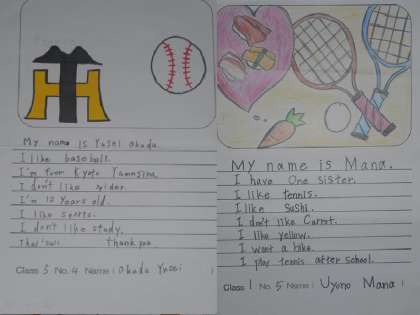 My name is Yusei Okuda.
I like baseball.
I'm from Kyoto Yamasina.
I don't like spider.
I'm 12 Years old.
I like sports.
I don't like study.
That's all. Thank you.
Class 3 No. 4 Name : Okuda Yusei
My name is Mana.
I have One sister.
I like tennis.
I like Sushi.
I don't like Carrot.
I like yellow.
I want a bike.
I play tennis after school.
Class 1 No 5 Name : Uyono Mana